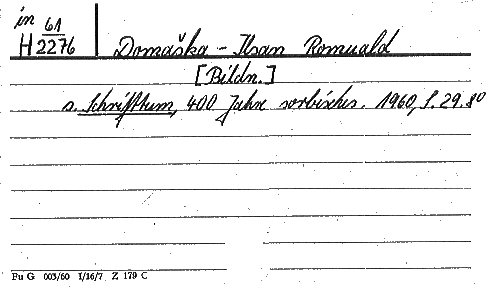 in 61
H 2276 Domaška - Ilsan Romuald
[Bildn.]
s. Schrifttum, 400 Jahre sorbisches. 1960, S. 29.80
Fu G 003/60 I/16/7 Z 179 C